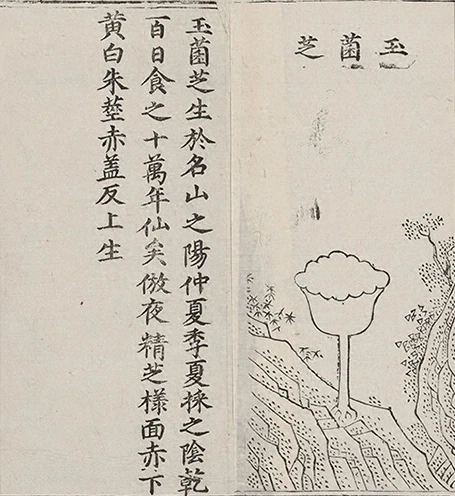 玉菌芝
玉菌芝生於名山之陽仲夏季夏採之陰乾
百日食之十萬年仙矣倣夜精芝樣面赤下
黄白朱莖赤盖反上生